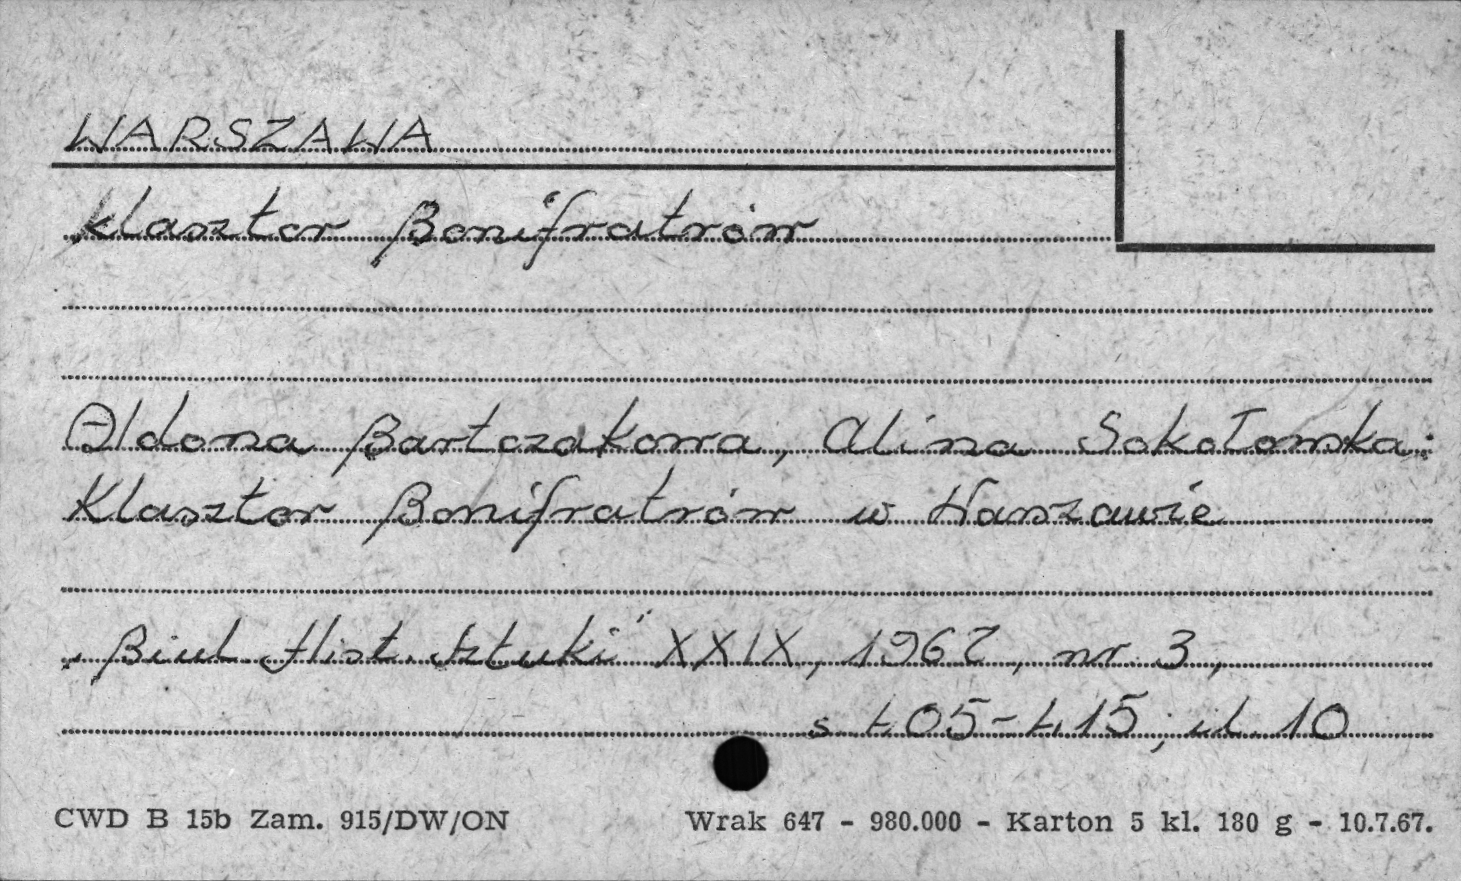 WARSZAWA
klasztor Bonifratrów
Aldona Bartczakowa, Alina Sokołowska:
Klasztor Bonifratrów w Warszawie
„Biul. Hist. Sztuki" XXIX, 1967, nr 3,
s. 405-415; il. 10
CWD B 15b Zam. 915/DW/ON Wrak 647 - 980.000 - Karton 5 kl. 180 g - 10.7.67.